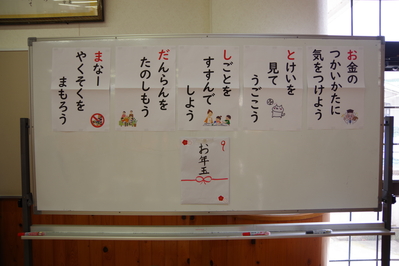 お金の
つかいかたに
気をつけよう
とけいを
見て
うごこう
しごとを
すすんで
しよう
だんらんを
たのしもう
まなー
やくそくを
まもろう
お年玉